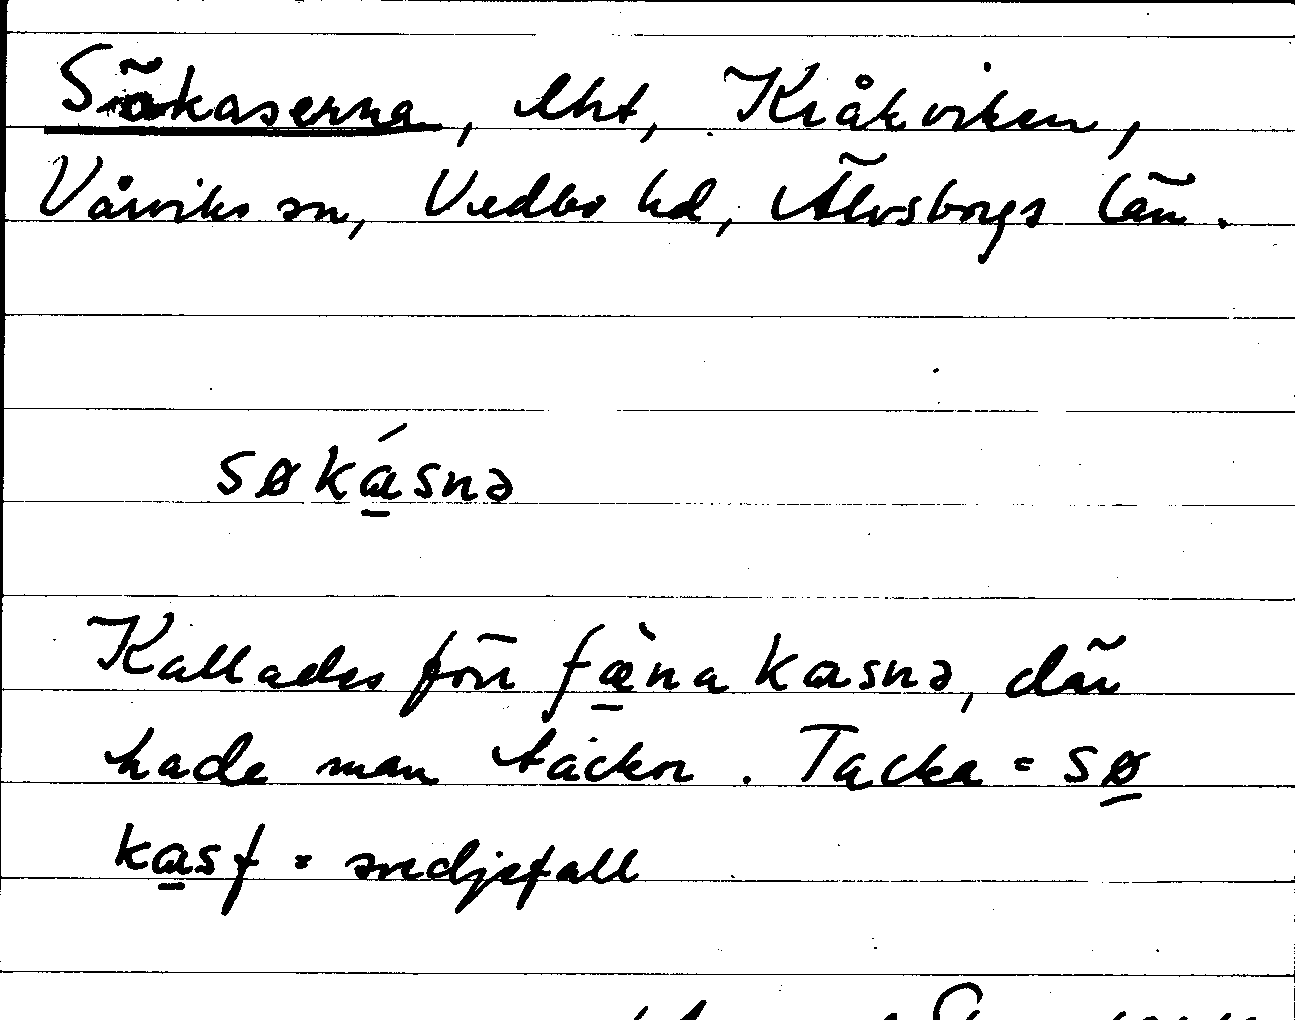 Sökaserna, lht, Kråkviken,
Vårviks sn, Vedbo hd, Älvsborgs län.
søkásnə
Kallades förr fæ̀na kasnə, där
hade man tackor. Tacka = sø
kas f = svedjefall